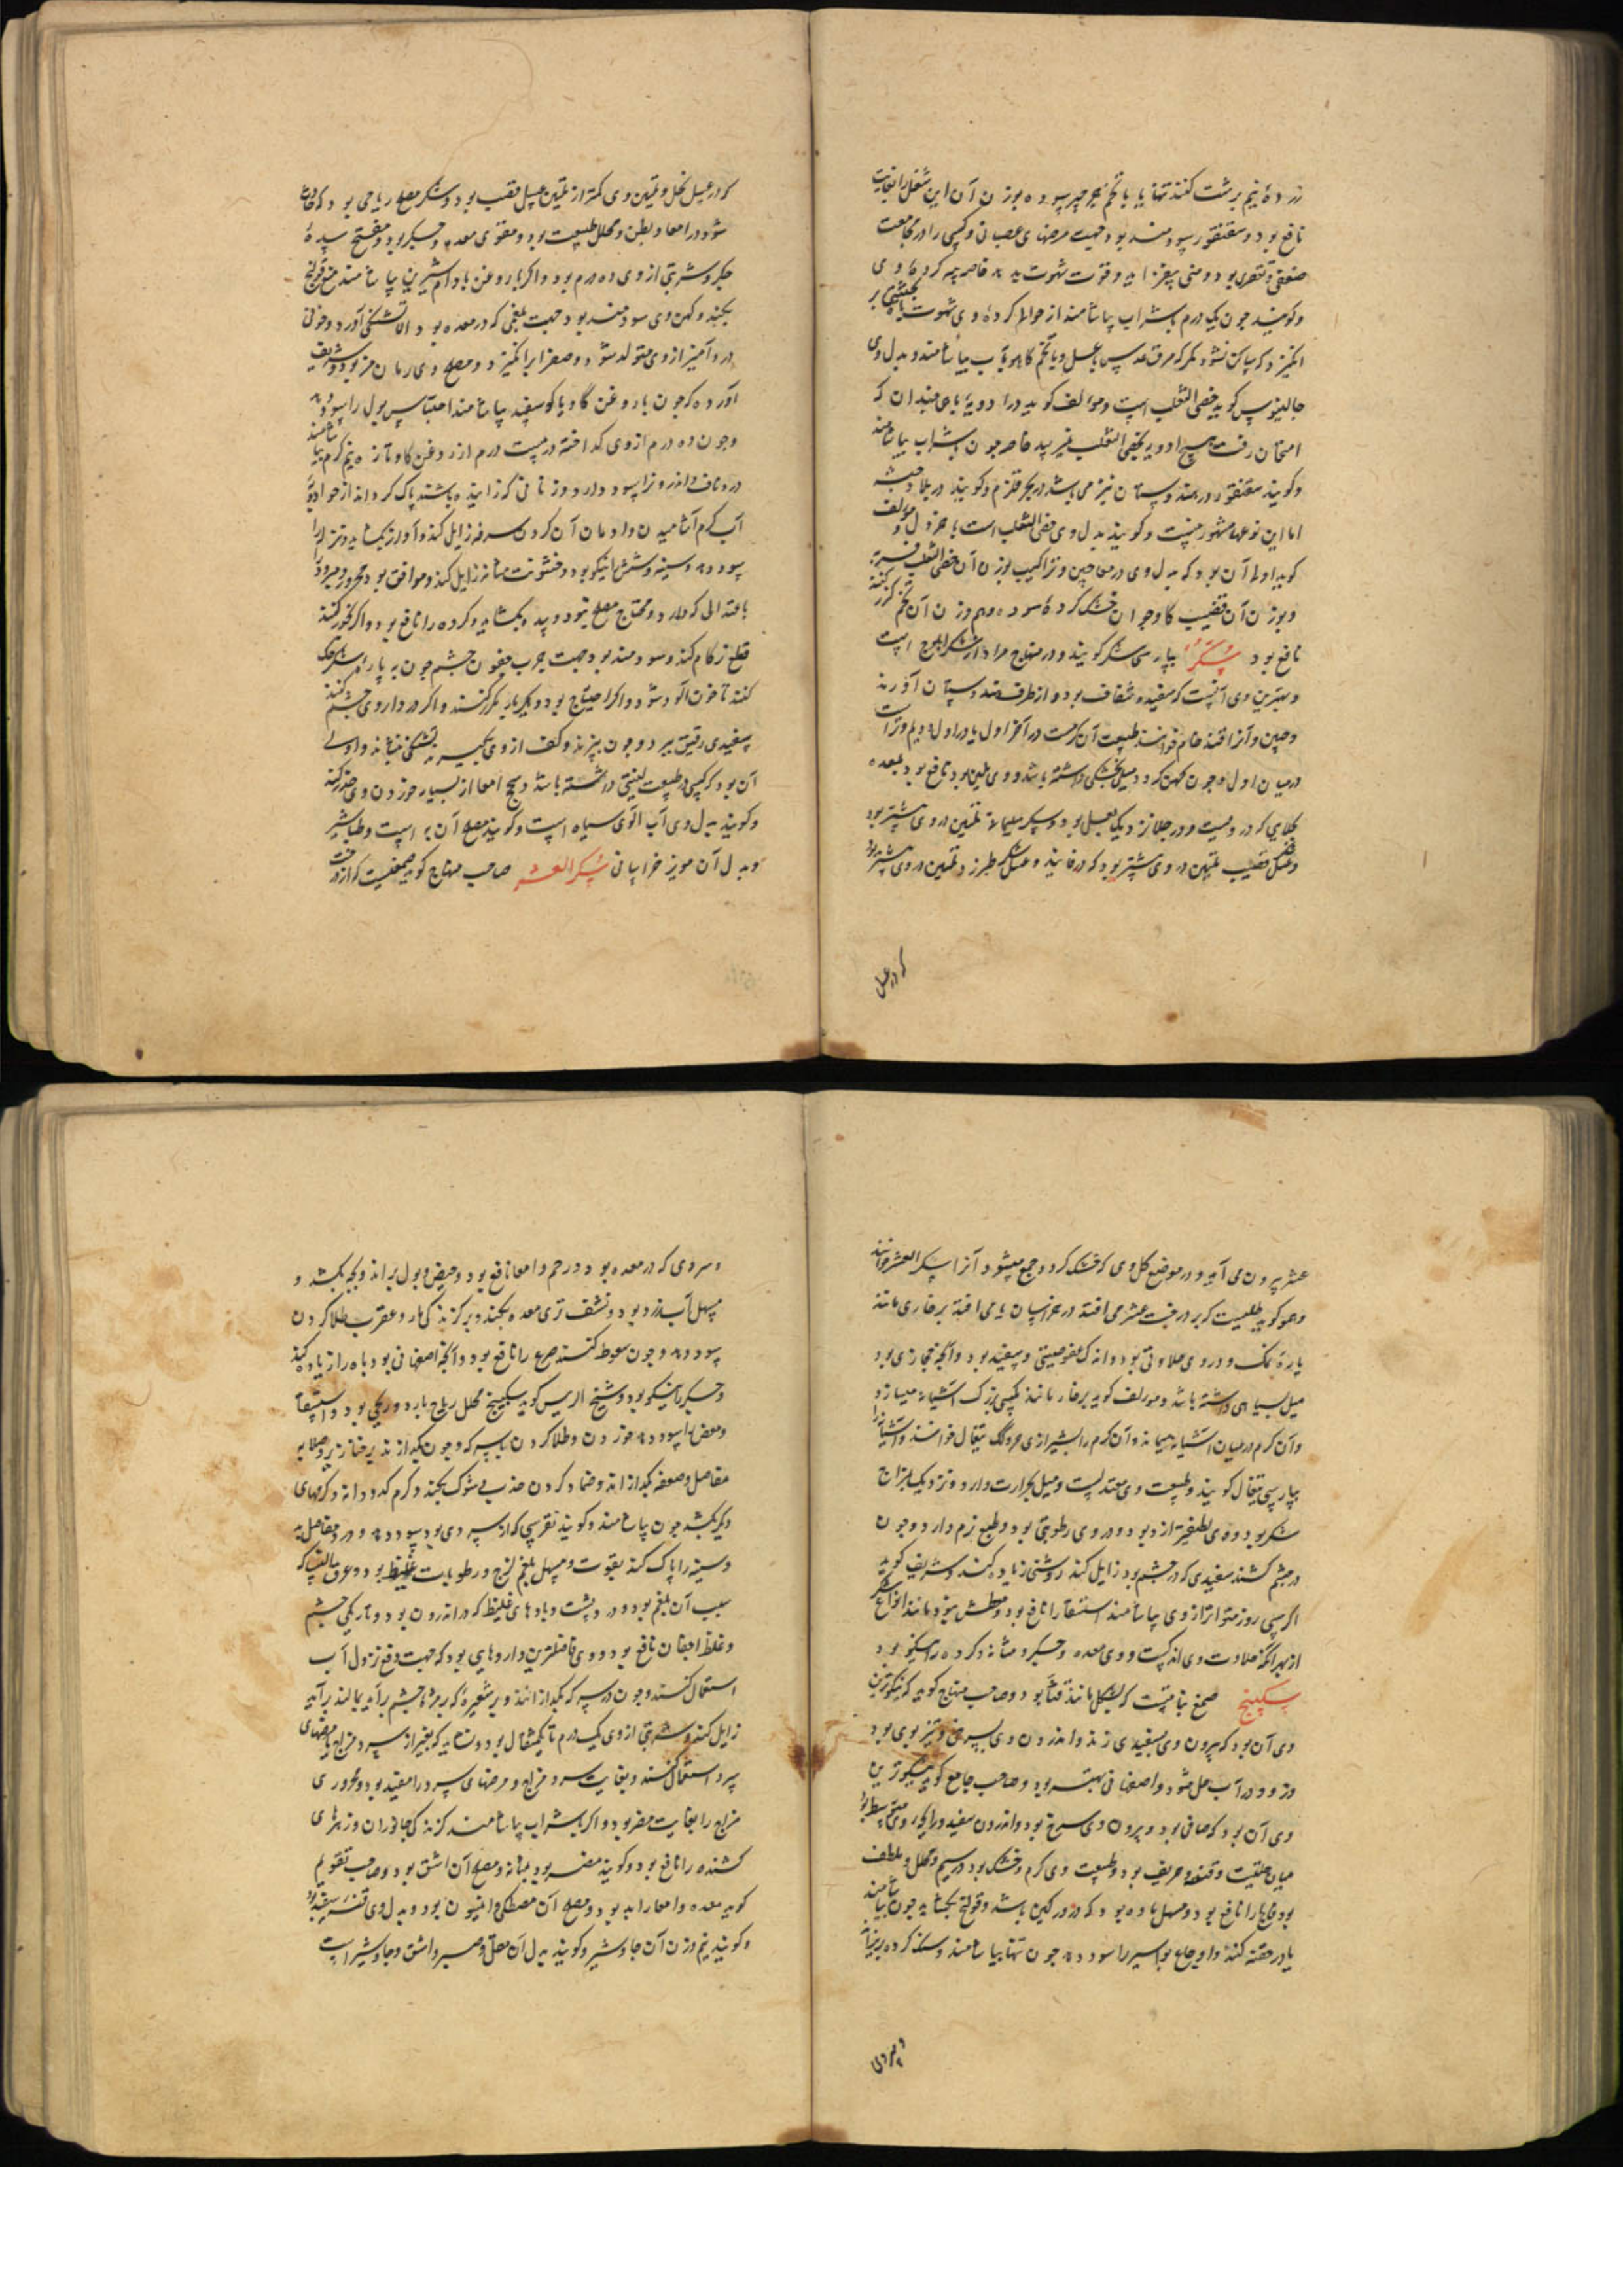 زردهٔ نیم برشت کنند تنها یا با تخم جرجیر سوده بوزن آن این شغل را بغایت
نافع بود و سقنقور سودمند بود جهت مرضهای عصبانی و کسی را در مجامعت
ضعفی و تقصیری بود و منی بیفزاید و قوت شهوت بدهد خاصه پیه گردهٔ وی
وکویند چون یک درم با شراب بیاشامند از حوالی کردهٔ وی شهوت بر
انکیزد که ساکن نشود مکر که مرق عدس با عسل و یا تخم کاهو بآب بیاشامند و بدل وی
جالینوس کوید خصی الثعلب است و مولف کوید در ادویهٔ باهی چندان که
امتحان رفت هیچ ادویه بخصی الثعلب نمیرسد خاصه چون با شراب بیاشامند
وکویند سقنقور در هندوستان نیز می باشد در بحر قلزم وکویند در بلاد حبشه
اما این نوعها مشهور نیست وکویند بدل وی خصی الثعلب است مولف
کوید اولی آن بود که بدل وی در معاجین و تراکیب بوزن آن خصی الثعلب
و بوزن آن قضیب کاو جوان خشک کردهٔ سوده و هم وزن آن تخم کزر کنند
نافع بود سُکّر بپارسی شکر کویند و در منهاج مراد از شکر است
و بهترین وی آنست که سفید و شفاف بود و از طرف هندوستان آورند
و چین و آنرا قند خام خوانند طبیعت آن کرمست در آخر اول یا در اول دویم و تر است
در میان اول و چون کهن کردد میل بخشکی داشته باشد و وی ملین بود نافع بود بمعده
بجلایی که در ویست و در جلا نزدیک بعسل بود و سکر سلیمانی تلیین در وی بیشتر بود
و عسل قصب تلیین در وی بیشتر بود که در فانید و عسل طبرزد تلیین در وی بیشتر بود
که در عسل
که در عسل نحل و تلیین وی کمتر از تلیین عسل قصب بود و شکر مصلح ریاحی بود که حادث
شود در امعا و بطن و محلل طبیعت بود و مقوی معده و جکر بود و مفتح سدهٔ
جکر و شربتی از وی ده درم بود و اکر با روغن بادام شیرین بیاشامند منع قولنج
بکند و کهن وی سودمند بود جهت بلغمی که در معده بود الا تشنکی آورد و خونی
درد آمیز از وی متولد شود و صفرا برانکیزد و مصلح وی رمان مز بود و شریف
آورده که چون با روغن کاو یا کوسفند بیاشامند احتباس بول را سود دهد
و چون ده درم از وی کداخته در بیست درم از روغن کاو تازه نیم کرم بیاشامند
درد ناف و اندرون را سود دارد و زنانی که زاییده باشند پاک کرداند از مواد و
آب کرم آشامیدن و ادمان آن کردن سرفه زایل کند و آواز بکشاید و نزله را
سود دهد و سینه و شش را نیکو بود و خشونت مثانه زایل کند و موافق بود محرور و مبرود را
باعتدالی که دارد و محتاج مصلح نبود و سده بکشاید و کرده را نافع بود و اکر بخور کنند
قطع زکام کند و سودمند بود جهت جرب جفون چشم چون بپارهٔ شکر حک
کنند تا خون آلود شود و اکر احتیاج بود دیکر بار مکرر کنند و اکر در داروی چشم کنند
سفیدی رقیق ببرد و چون بپزند و کف از وی بکیرند تشنکی بنشاند و اولی
آن بود که کسی در طبیعت لینتی داشته باشد و سحج امعا از بسیار خوردن وی حذر کند
وکویند بدل وی آب آلوی سیاه است وکویند مصلح آن به است و طباشیر
و بدل آن مویز خراسانی سکر العشر صاحب منهاج کوید صمغیست که از درخت
عشر بیرون می آید و در موضع کل وی که خشک کردد و جمع میشود آنرا سکر العشر خوانند
و هو کوید طلیست که بر درخت عشر می افتد در خراسان یا می افتد بر خاری مانند
پارهٔ نمک و در وی حلاوتی بود و اندک عفوصتی و سفید بود و آنچه حجازی بود
میل بسیاهی داشته باشد و مولف کوید بر خار مانند مکسی بزرک آشیانه میسازد
و آن کرم در میان آشیانه میماند و آن کرم را بشیرازی خوانند و آشیانه را
بپارسی تیغال کویند و طبیعت وی معتدلست و میل بحرارت دارد و نزدیک بمزاج
شکر بود و وی لطیفتر از و بود و در وی رطوبتی بود و طبع نرم دارد و چون
در چشم کشند سفیدی که در چشم بود زایل کند و روشنی زیاده کند و شریف کوید
اکر سی روز متواتر از وی بیاشامند استسقا را نافع بود و معطش نبود مانند انواع شکر
از بهر آنکه حلاوت وی اندکیست و وی معده و جکر و مثانه و کرده را نیکو بود
سکبینج صمغ نباتیست که بشکل مانند قثا بود و صاحب منهاج کوید که نیکوترین
وی آن بود که بیرون وی بسفیدی زند و اندرون وی بسرخی و تیز بوی بود
و زود در آب حل شود و اصفهانی بهتر بود و صاحب جامع کوید نیکوترین
وی آن بود که صافی بود و بیرون وی سرخ بود و اندرون سفید و رایحهٔ وی متوسط بود
میان حلتیت و قنه و حریف بود و طبیعت وی کرم و خشک بود در سیم و محلل و ملطف
بود فالج را نافع بود و مسهل ماده بود که در ورکین باشد و قولنج بکشاید چون بیاشامند
یا در حقنه کنند و اوجاع بواسیر را سود دهد چون تنها بیاشامند و سنک کرده بریزاند
و سردی
و سردی که در معده بود و در رحم و امعا نافع بود و حیض و بول براند و بچه بکشد و
مسهل آب زرد بود و نشف تری معده بکند و بر کزندکی مار و عقرب طلا کردن
سود دهد و چون سعوط کنند صرع را نافع بود و آنچه اصفهانی بود باه را زیاده کند
و جکر را نیکو بود و شیخ الرییس کوید سکبینج محلل ریاح بارد و ریحی بود و استسقا
و مغص را سود دهد خوردن و طلا کردن با سرکه و چون بکدازند بر خنازیر و صلابه
مفاصل و صعفه بکدازاند و ضماد کردن جذب شوک بکند و کرم کدودانه و کرمهای
دیکر بکشد چون بیاشامند وکویند نقرسی که از سردی بود سود دهد و درد مفاصل بد
و سینه را پاک کند بقوت و مسهل بلغم لزج و رطوبات غلیظ بود و عرق النسا که
سبب آن بلغم بود و درد پشت و بادهای غلیظ که در اندرون بود و تاریکی چشم
و غلظ اجفان نافع بود و وی فاضلترین داروهایی بود که جهت دفع نزول آب
استعمال کنند و چون در سرکه بکدازانند و بر شعیرهٔ که بر مژهٔ چشم برآید بمالند برآید
زایل کند و شربتی از وی یک درم تا یکمثقال بود و نشاید که بغیر از سرد مزاج یا مرضهای
سرد استعمال کنند و بغایت سرد مزاج و مرضهای سرد را مفید بود و محروری
مزاج را بغایت مضر بود و اکر با شراب بیاشامند کزندکی جانوران و زهرهای
کشنده را نافع بود وکویند مضر بود بمثانه و مصلح آن اشق بود و صاحب تقویم
کوید معده و امعا را بد بود و مصلح آن مصطکی و انیسون بود و بدل وی قنه سفید بود
وکویند نیم وزن آن جاوشیر وکویند بدل آن مقل و صبر و اشق و جاوشیر است